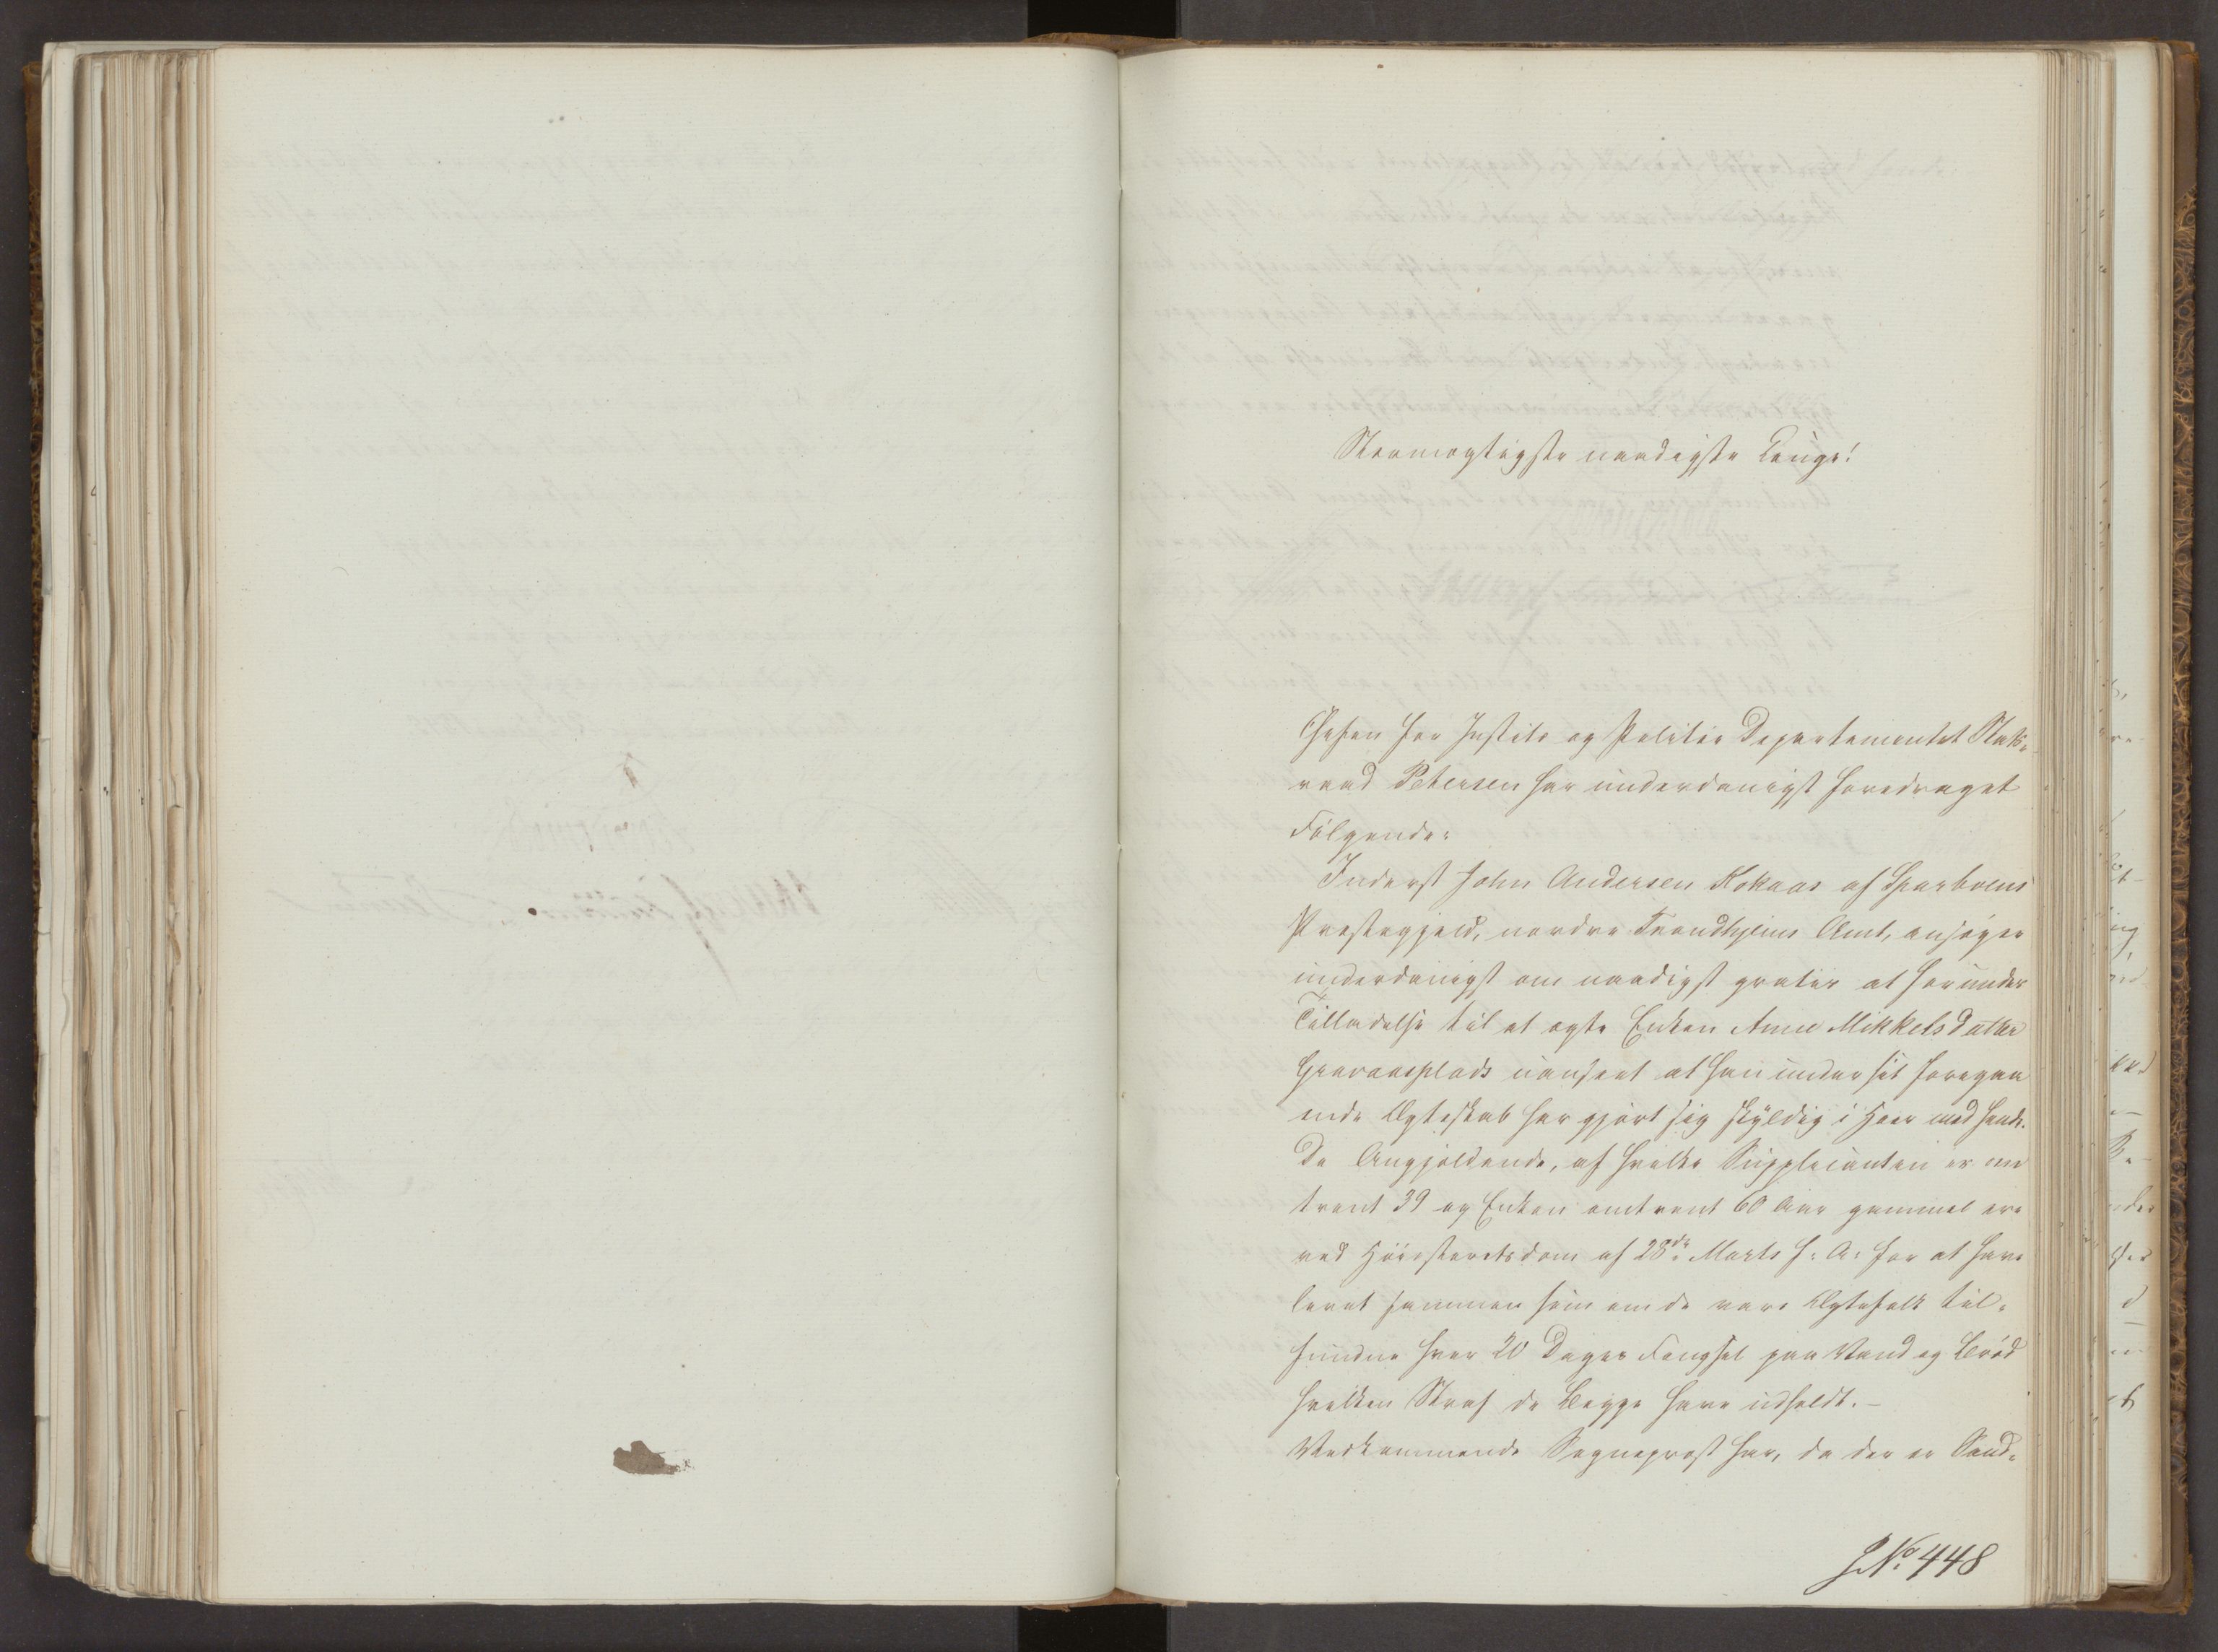 Stormægtigste naadigste Konge!
Chefen for Justits og Politie Departementet Stats-
raad Petersen har underdanigst foredraget
Følgende:
Inderst John Andersen Kokaas af Sparboens
Præstegjeld, nordre Trondhjems Amt, ansøger
underdanigst om naadigst gratis at forundes
Tilladelse til at ægte Enken Anne Mikkelsdatter
Gravaasplads uanseet at han under sit foregaa
ende Ægteskab har gjort sig skyldig i Hoer med hende.
De Angjeldende, af hvilke Supplicanten er om
trent 39 og Enken omtrent 60 Aar gammel ere
ved Høiesteretsdom af 28de Marts f. A. for at have
levet sammen som om de vare Ægtefolk til-
fundne hver 20 Dages Fængsel paa Vand og Brød
hvilken Straf de Begge have udholdt. -
Vedkommende Sognepræst har, da der er Sand-
J. No. 448